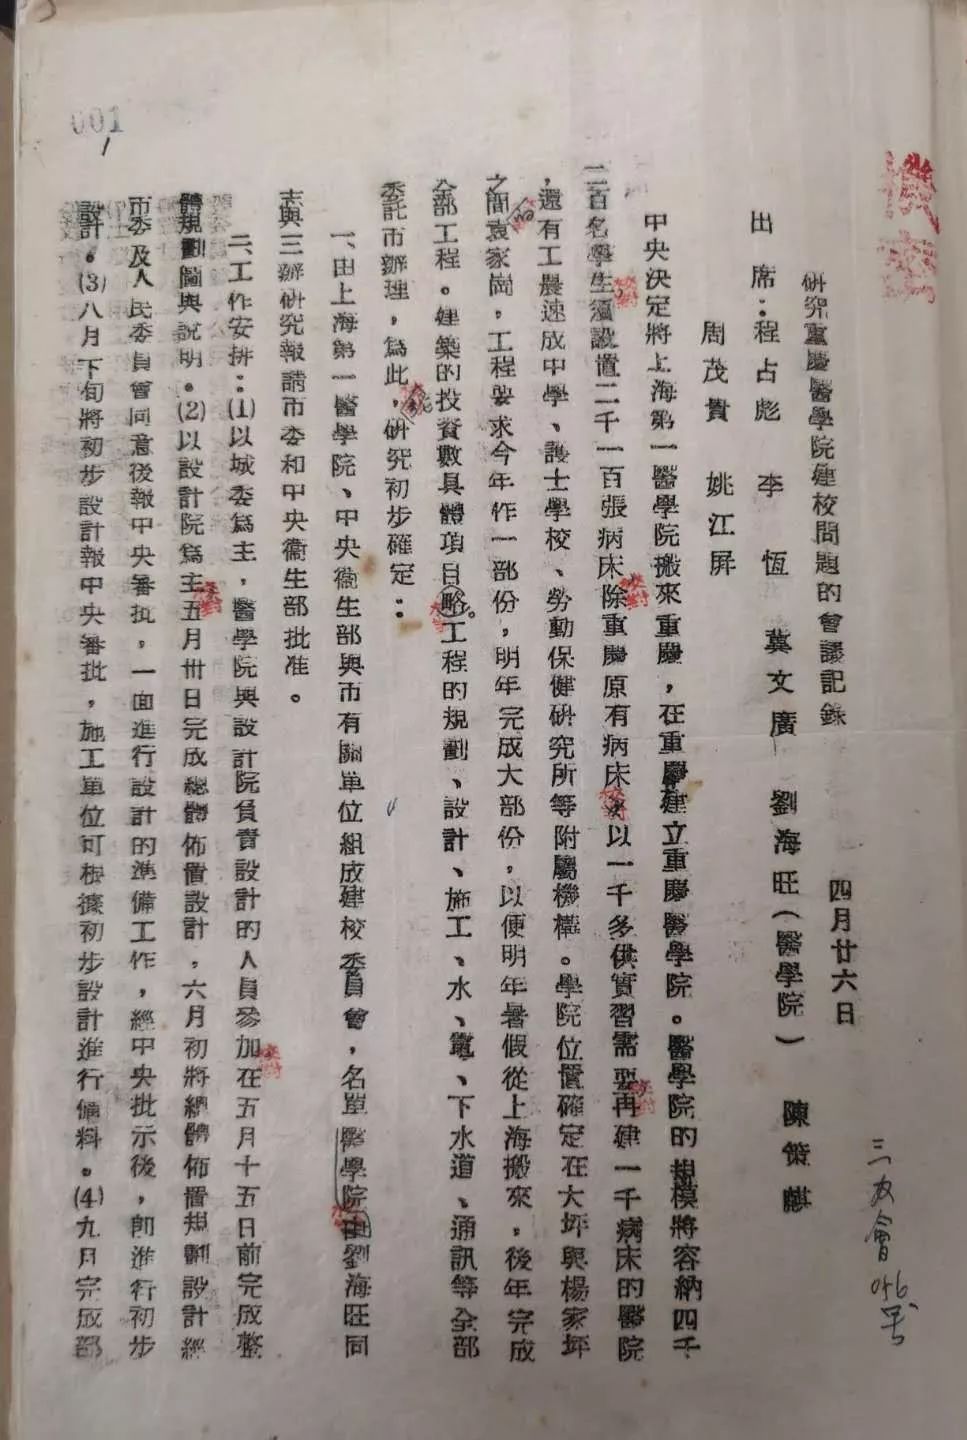 001
1
機密
三办會 046号
研究重慶醫學院建校問題的會議記錄
四月廿六日
出席:程占彪 李恆 冀文廣 劉海旺(醫學院) 陳策麒
周茂貴 姚江屏
中央決定將上海第一醫學院搬來重慶,在重慶建立重慶醫學院。醫學院的規模將容納四千
二百名學生須設置二千一百張病床除重慶原有病床以一千多供實習需要再建一千病床的醫院
,還有工農速成中學、護士學校、勞動保健研究所等附屬機構。學院位置確定在大坪與楊家坪
之間袁家崗,工程要求今年作一部份,明年完成大部份,以便明年暑假從上海搬來,後年完成
全部工程。建築的投資數具體項目略。工程的規劃、設計、施工、水、電、下水道、通訊等全部
委託市辦理,為此,研究初步確定:
一、由上海第一醫學院、中央衞生部與市有關單位組成建校委員會,名單醫學院由劉海旺同
志與三辦研究報請市委和中央衞生部批准。
二、工作安排:(1)以城委為主,醫學院與設計院負責設計的人員參加在五月十五日前完成整
體規劃圖與說明。(2)以設計院為主五月卅日完成總體佈置設計,六月初將總體佈置規劃設計經
市委及人民委員會同意後報中央審批,一面進行設計的準備工作,經中央批示後,即進行初步
設計。(3)八月下旬將初步設計報中央審批,施工單位可根據初步設計進行備料。(4)九月完成部